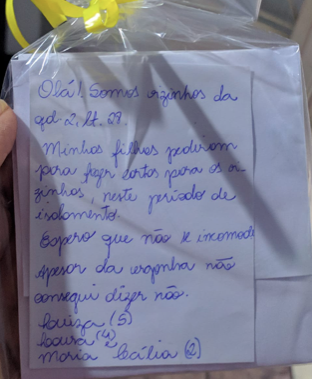 Olá! Somos vizinhos da
qd-2, lt. 29.
Minhas filhas pediram
para fazer cartas para os vi-
zinhos, neste período de
isolamento.
Espero que não se incomode
apesar da vergonha não
consegui dizer não.
Luiza (5)
Laura (4) e
Maria Cecília (2)